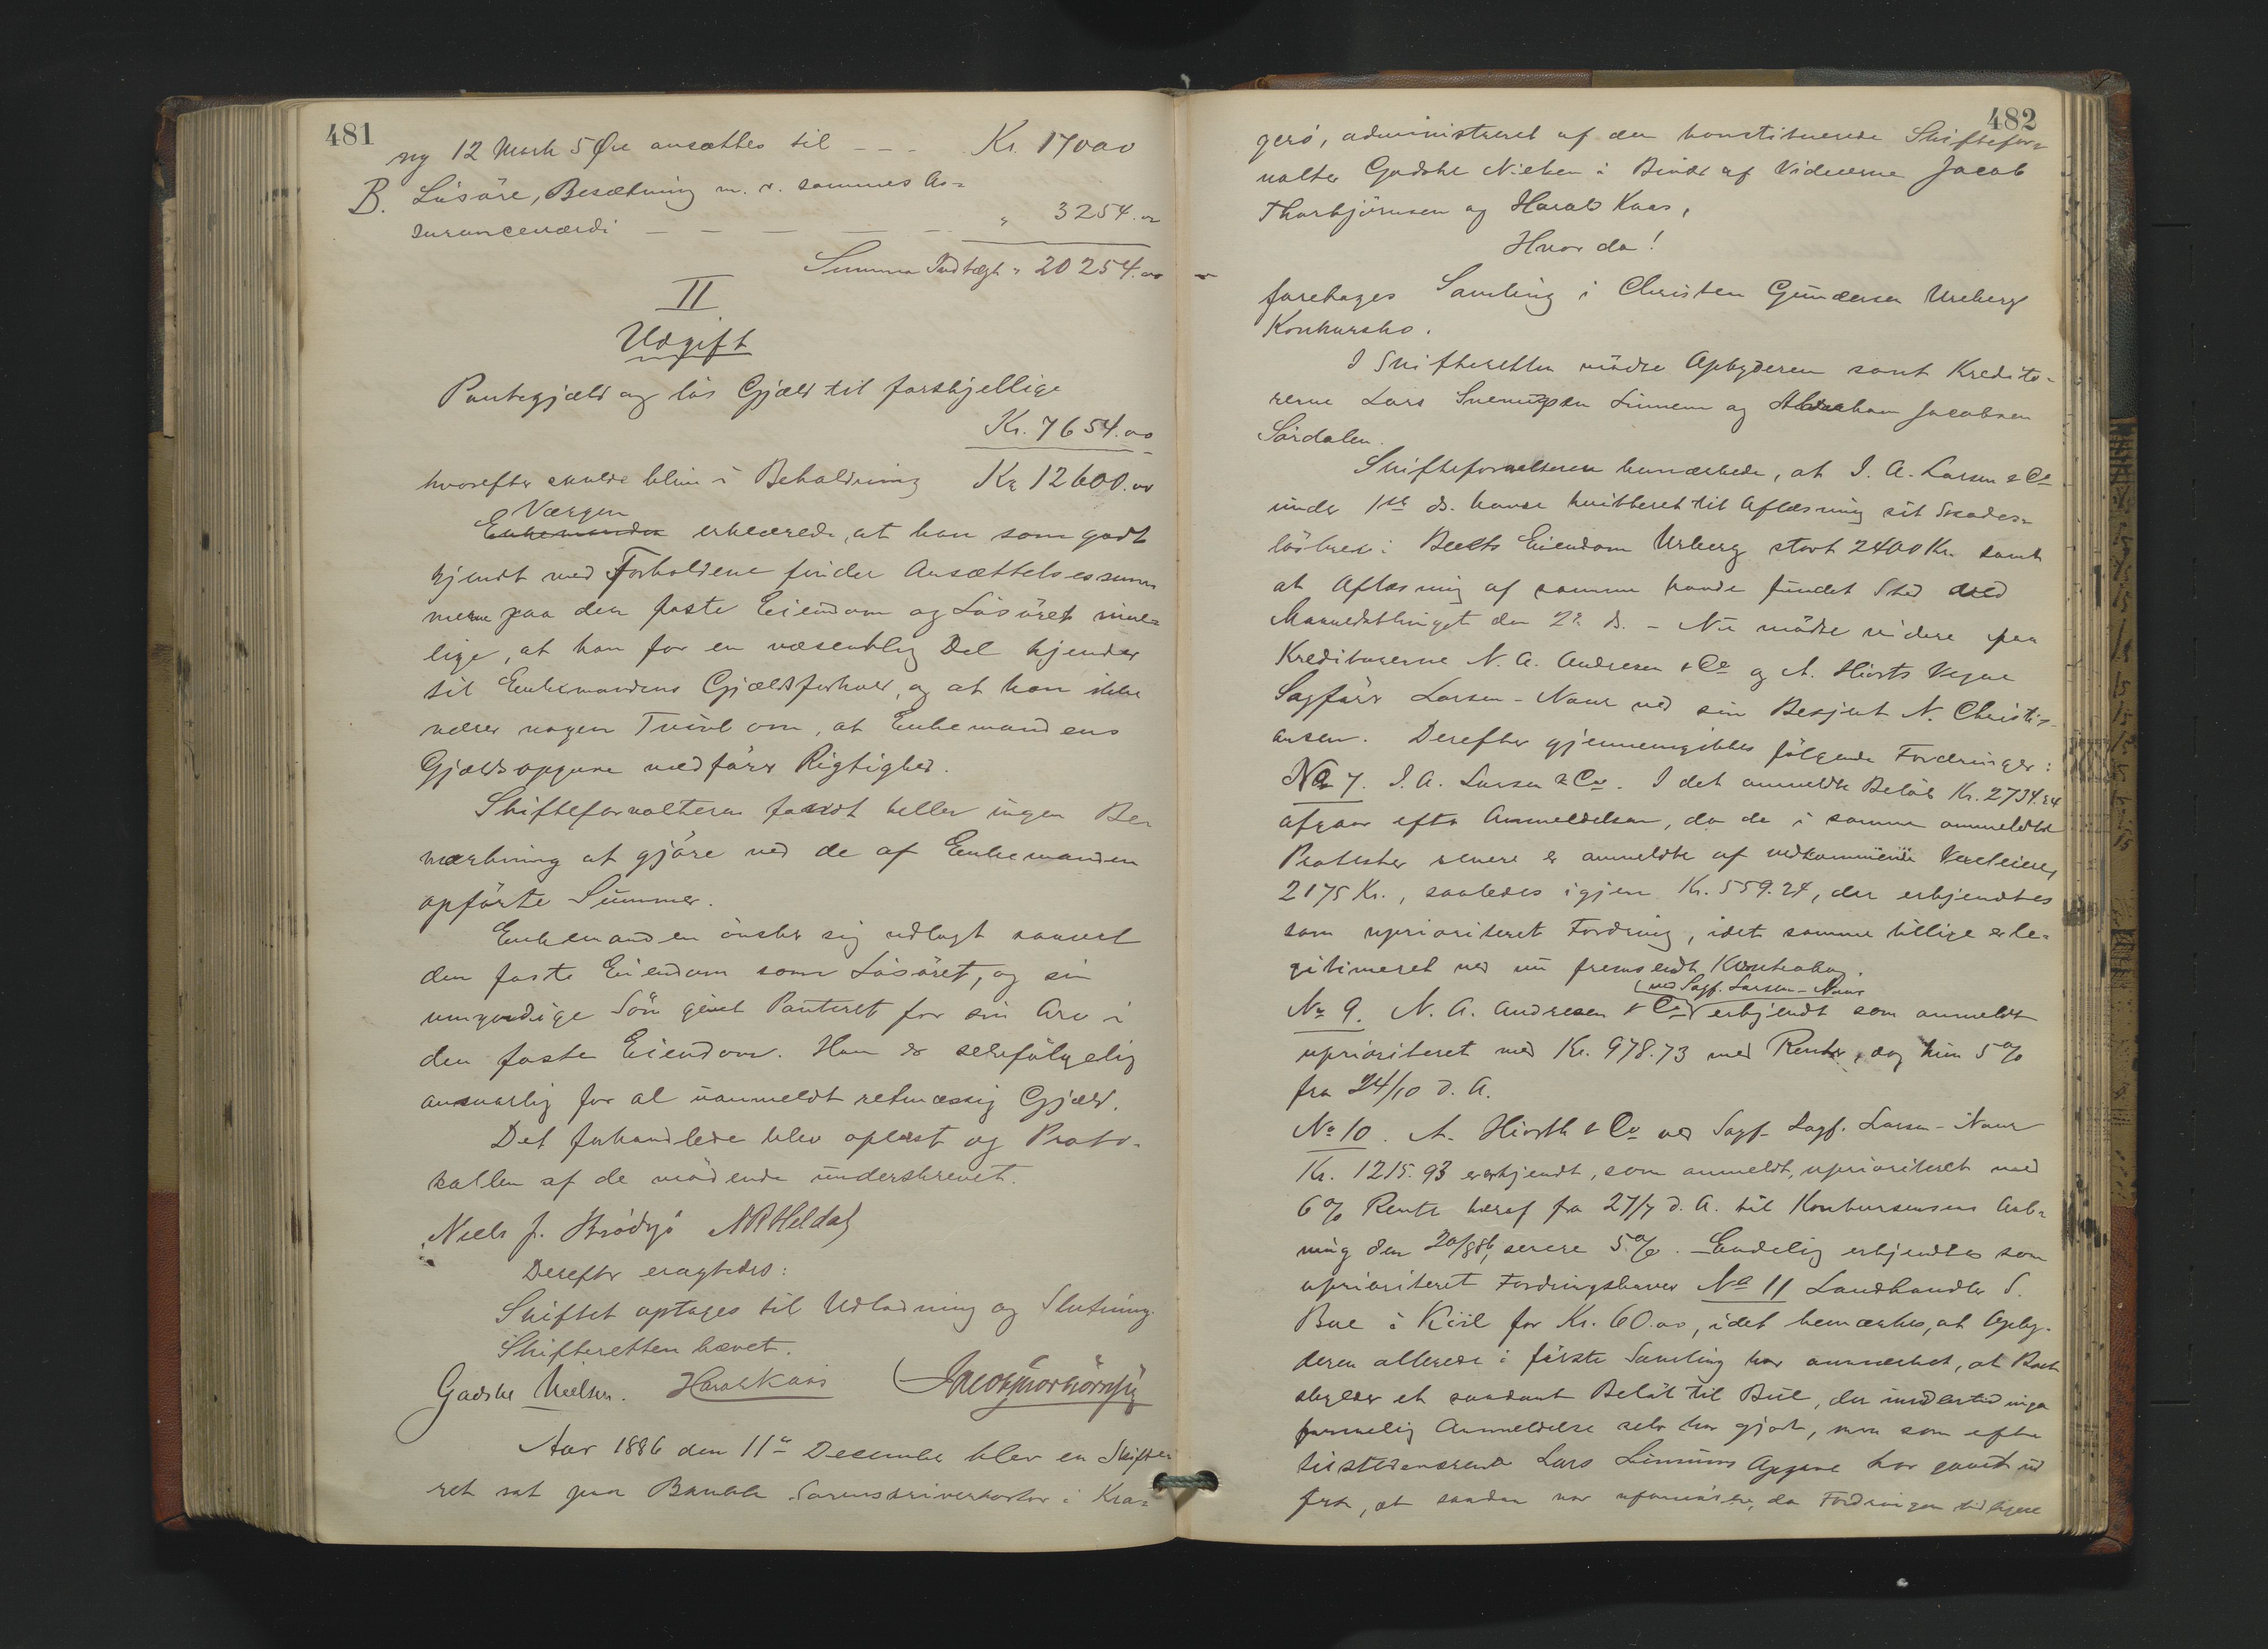 481
ny 12 Mark 5 Øre ansættes til - - - Kr. 17000
B. Lösöre, Besætning m. v. sammes As=
suranceværdi - - - - - " 3254.00
Summa Indtægt " 20254.00
II
Udgift
Pantegjæld og lös Gjæld til forskjellige
Kr. 7654.00
hvorefter skulde blive i Beholdning Kr 12600.00
Værgen
Enkemanden erklærede, at han som godt
kjendt med Forholdene finder Ansættelsessum
merne paa den faste Eiendom og Lösöret rime=
lige, at han for en væsentlig Del kjender
til Enkemandens Gjældsforhold, og at han ikke
nærer nogen Tvivl om, at Enkemandens
Gjældsopgave medförer Rigtighed.
Skifteforvalteren fandt heller ingen Be=
mærkning at gjöre ved de af Enkemanden
opförte Summer.
Enkemanden önsker sig udlagt saavel
den faste Eiendom som Lösöret, og sin
umyndige Sön givet Panteret for sin Arv i
den faste Eiendom. Han er selvfölgelig
ansvarlig for al uanmeldt retmæssig Gjæld.
Det forhandlede blev oplæst og Proto=
kollen af de mödende underskrevet.
Niels J. Brödsjö N R Heldal
Derefter eragtedes:
Skiftet optages til Udlodning og Slutning.
Skifteretten hævet.
Gadske Nielsen. Harald Kaas Jacob Thorbjörnsen
Aar 1886 den 11te December blev en Skifte=
ret sat paa Bamble Sorenskriverkontor i Kra=
482
gerö, administreret af den konstituerede Skiftefor=
valter Gadske Nielsen i Bivær af Vidnerne Jacob
Thorbjörnsen og Harald Kaas,
Hvor da!
foretoges Samling i Christen Gundersen Ureberg
Konkursbo.
I Skifteretten mödte Opbyderen samt Kredito=
rerne Lars Svenungsen Linnem og Abraham Jacobsen
Sördalen.
Skifteforvalteren bemærkede, at I. A. Larsen & Co
under 1ste ds. havde kvitteret til Aflæsning sit Skades=
lösbrev i Boets Eiendom Urberg stort 2400 Kr. samt
at Aflæsning af samme havde fundet Sted ved
Maanedsthinget den 2n ds. - Nu mödte videre paa
Kreditorerne N. A. Andresen & Co og A. Hiorts Vegne
Sagförer Larsen-Naur ved sin Besjent N. Christi=
ansen. Derefter gjennemgikkes fölgende Fordringer:
No 7. I. A. Larsen & Co. I det anmeldte Belöb Kr. 2734.24
afgaar efter Anmeldelsen, da de i samme anmeldte
Protester senere er anmeldte af vedkommende Vexeleiere,
2175 Kr., saaledes igjen Kr. 559.24, der erkjendtes
som uprioriteret Fordring, idet samme tillige er le=
gitimeret ved nu fremsendt Kontrabog.
(ved Sagf. Larsen-Naur
No 9. N. A. Andresen & Co) erkjendt som anmeldt
uprioriteret med Kr. 978.73 med Renter, dog kun 5%
fra 24/10 d. A.
No 10. A. Hiorth & Co ved Sagf. Sagf. Larsen-Naur
Kr. 1215.93 er erkjendt, som anmeldt, uprioriteret med
6% Rente heraf fra 27/7 d. A. til Konkursens Aab=
ning den 20/8 86, senere 5%. - Endelig erkjendtes som
uprioriteret Fordringshaver No 11 Landhandler S.
Bue i Kiil for Kr. 60.00, idet bemærkes, at Opby=
deren allerede i förste Samling har anmærket, at Boet
skylder et saadant Belöb til Bue, der imidlertid ingen
formelig Anmeldelse selv har gjort, men som efter
tilstedeværende Lars Linnems Opgave har gaaet ud
fra, at saadan var ufornöden, da Fordringen tidligere